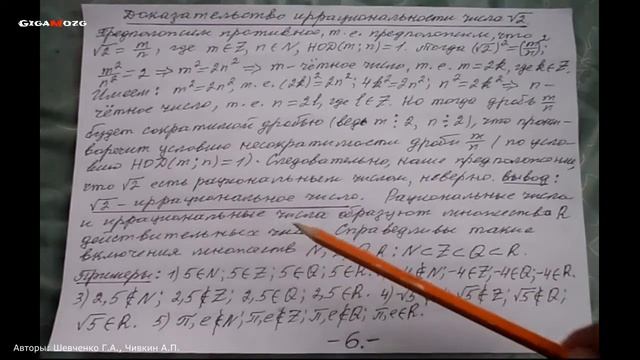 GIGAMOZG
Доказательство иррациональности числа √2
Предположим противное, т.е. предположим, что
√2 = m/n, где m∈Z, n∈N, НОД(m;n)=1. Тогда (√2)²=(m/n)²;
m²/n² = 2 ⇒ m²=2n² ⇒ m-чётное число, т.е. m=2k, где k∈Z.
Имеем: m²=2n², т.е. (2k)²=2n²; 4k²=2n²; n²=2k² ⇒ n-
чётное число, т.е. n=2l, где l∈Z. Но тогда дробь m/n
будет сократимой дробью (ведь m⋮2, n⋮2), что проти-
воречит условию несократимости дроби m/n (по усло-
вию НОД(m;n)=1). Следовательно, наше предположение,
что √2 есть рациональным числом, неверно. Вывод:
√2 - иррациональное число. Рациональные числа
и иррациональные числа образуют множества R
действительных Справедливы такие
включения множеств N, R: N⊂Z⊂Q⊂R.
Примеры: 1) 5∈N; 5∈Z; 5∈Q; 5∈R. -4∉N; -4∈Z; -4∈Q; -4∈R.
3) 2,5∉N; 2,5∉Z; 2,5∈Q; 2,5∈R. 4) √5∉Z; √5∉Q;
√5∈R. 5) π,e∉N; π,e∉Z; π,e∉Q; π,e∈R.
-6.-
Авторы: Шевченко Г.А., Чивкин А.П.